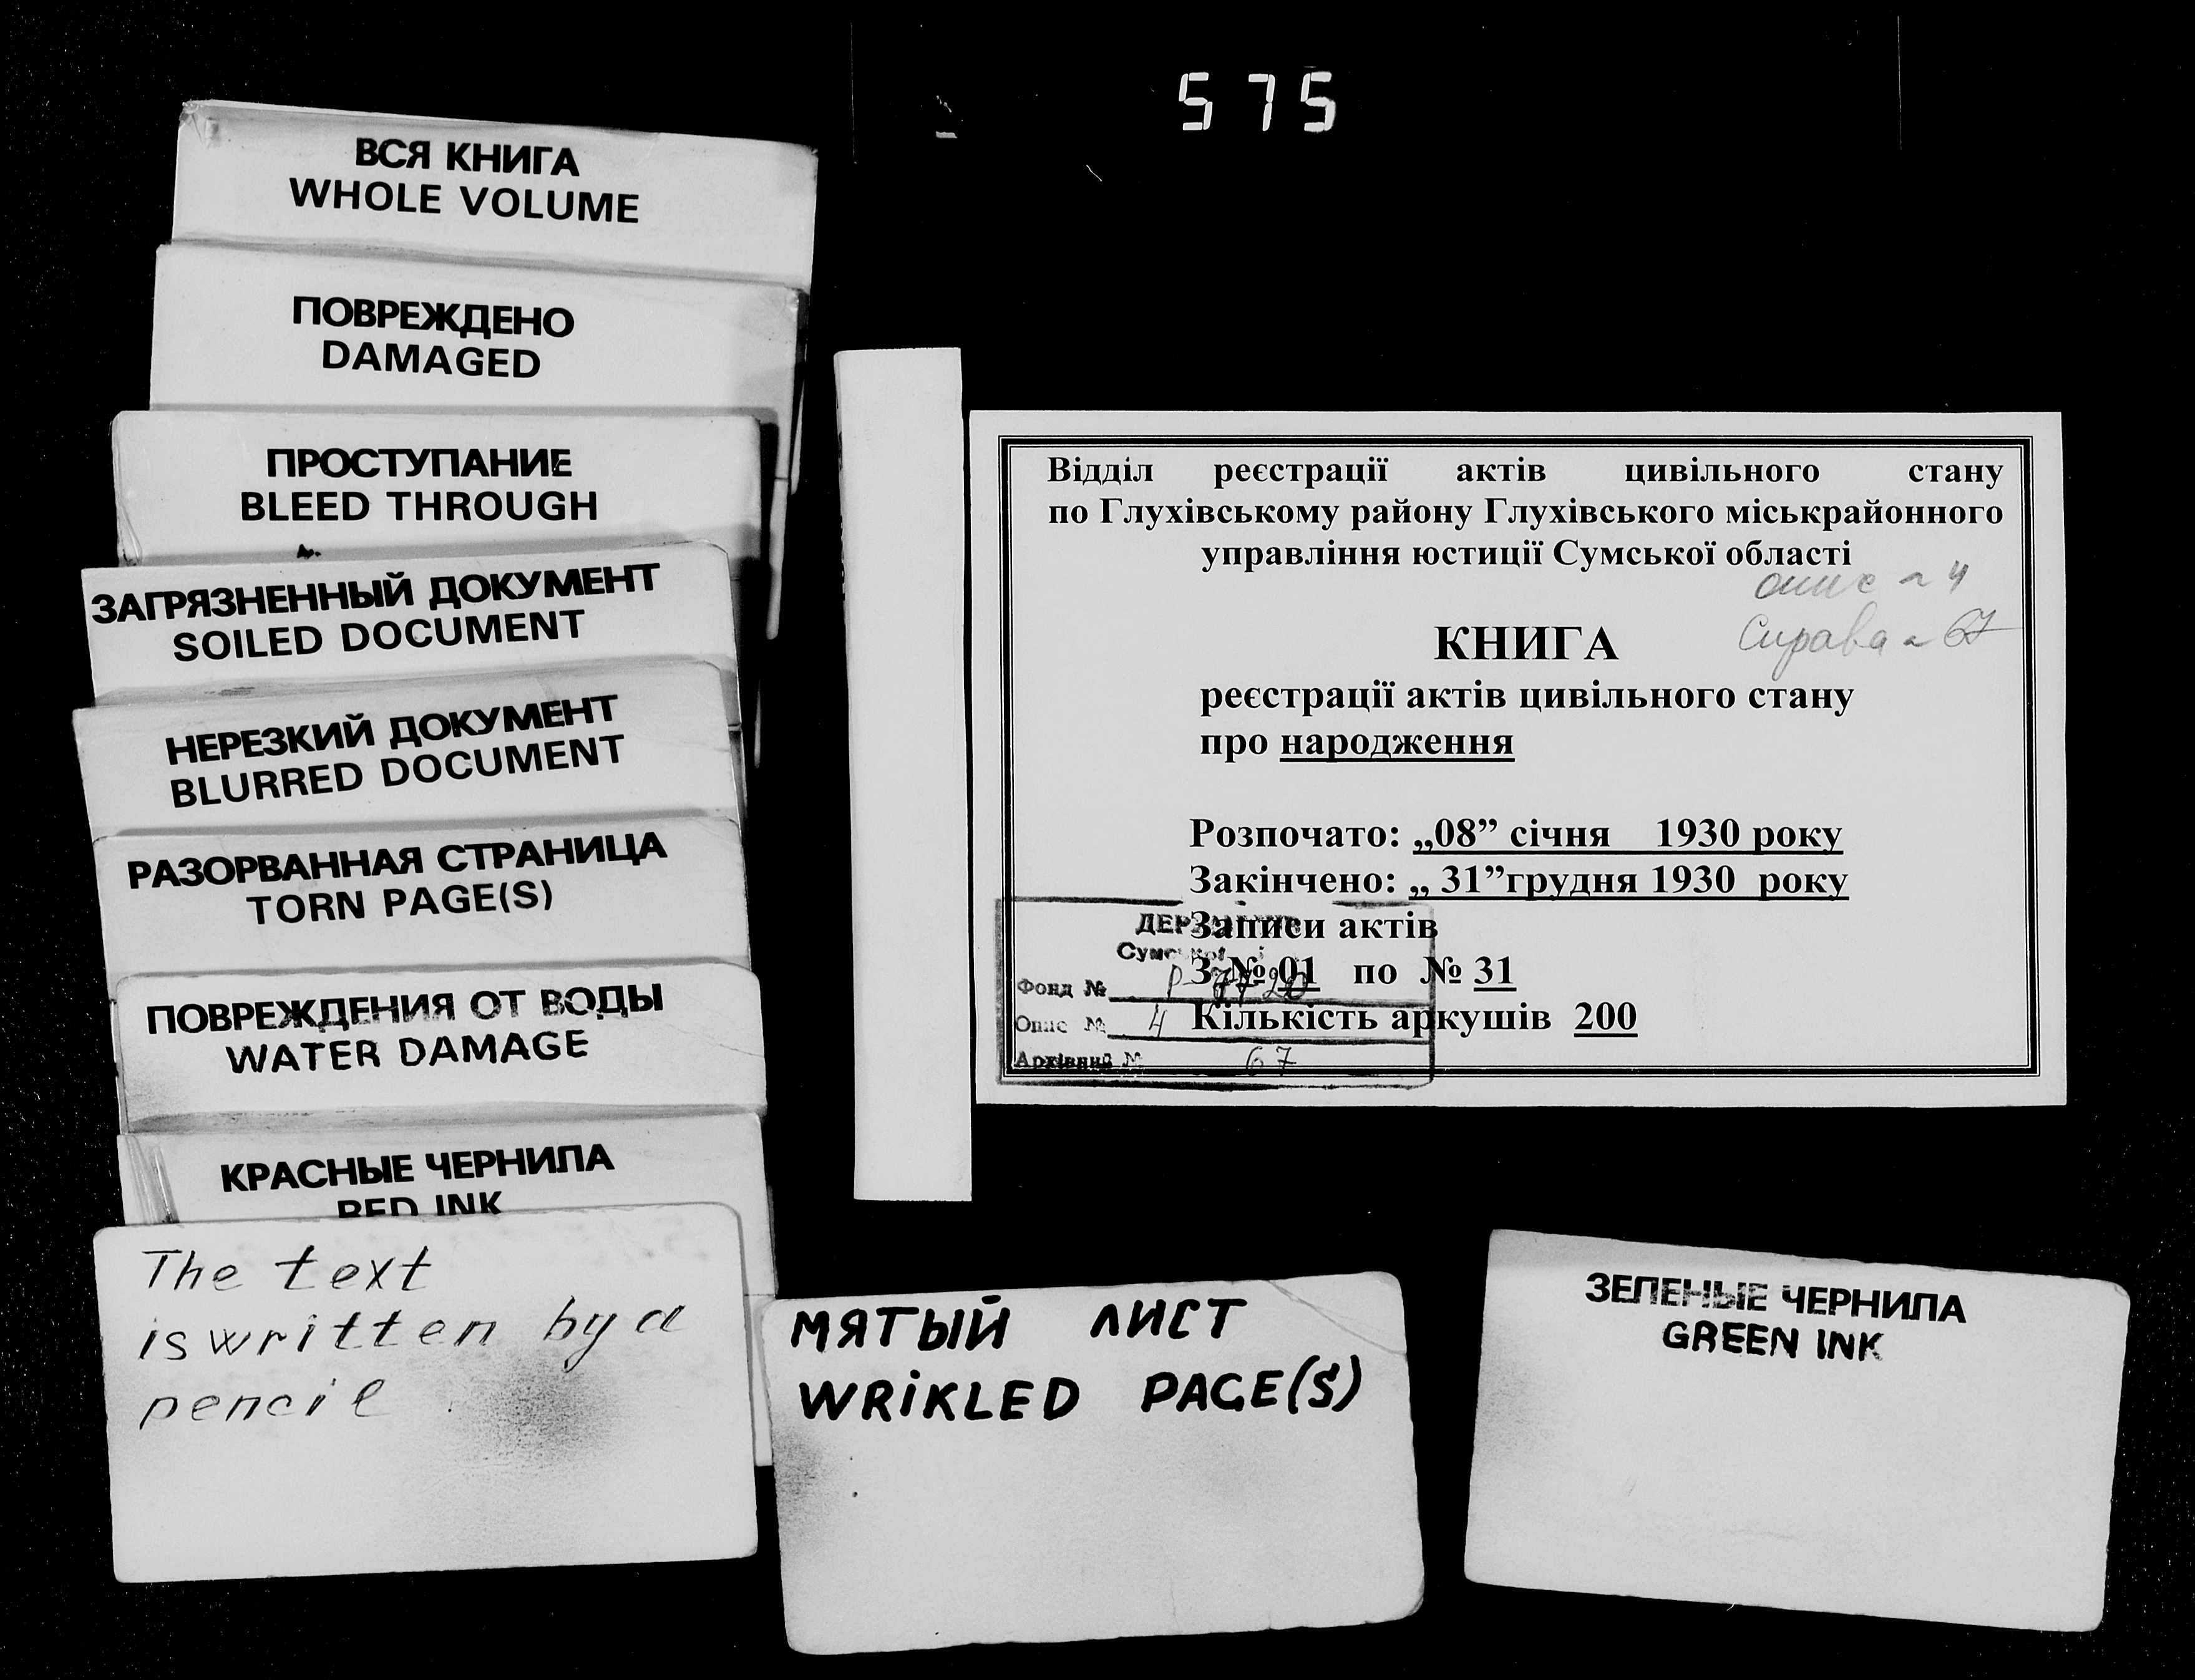 575
ВСЯ КНИГА
WHOLE VOLUME
ПОВРЕЖДЕНО
DAMAGED
ПРОСТУПАНИЕ
BLEED THROUGH
ЗАГРЯЗНЕННЫЙ ДОКУМЕНТ
SOILED DOCUMENT
НЕРЕЗКИЙ ДОКУМЕНТ
BLURRED DOCUMENT
РАЗОРВАННАЯ СТРАНИЦА
TORN PAGE(S)
ПОВРЕЖДЕНИЯ ОТ ВОДЫ
WATER DAMAGE
КРАСНЫЕ ЧЕРНИЛА
RED INK
The text
is written by a
pencil
Відділ реєстрації актів цивільного стану
по Глухівському району Глухівського міськрайонного
управління юстиції Сумської області
опис ~ 4
Справа ~ 67
КНИГА
реєстрації актів цивільного стану
про народження
Розпочато: „08” січня 1930 року
Закінчено: „ 31”грудня 1930 року
Записи актів
З № 01 по № 31
Кількість аркушів 200
Фонд №
Опис № 4
Архівний № 67
МЯТЫЙ ЛИСТ
WRiKLED PAGE(S)
ЗЕЛЕНЫЕ ЧЕРНИЛА
GREEN INK